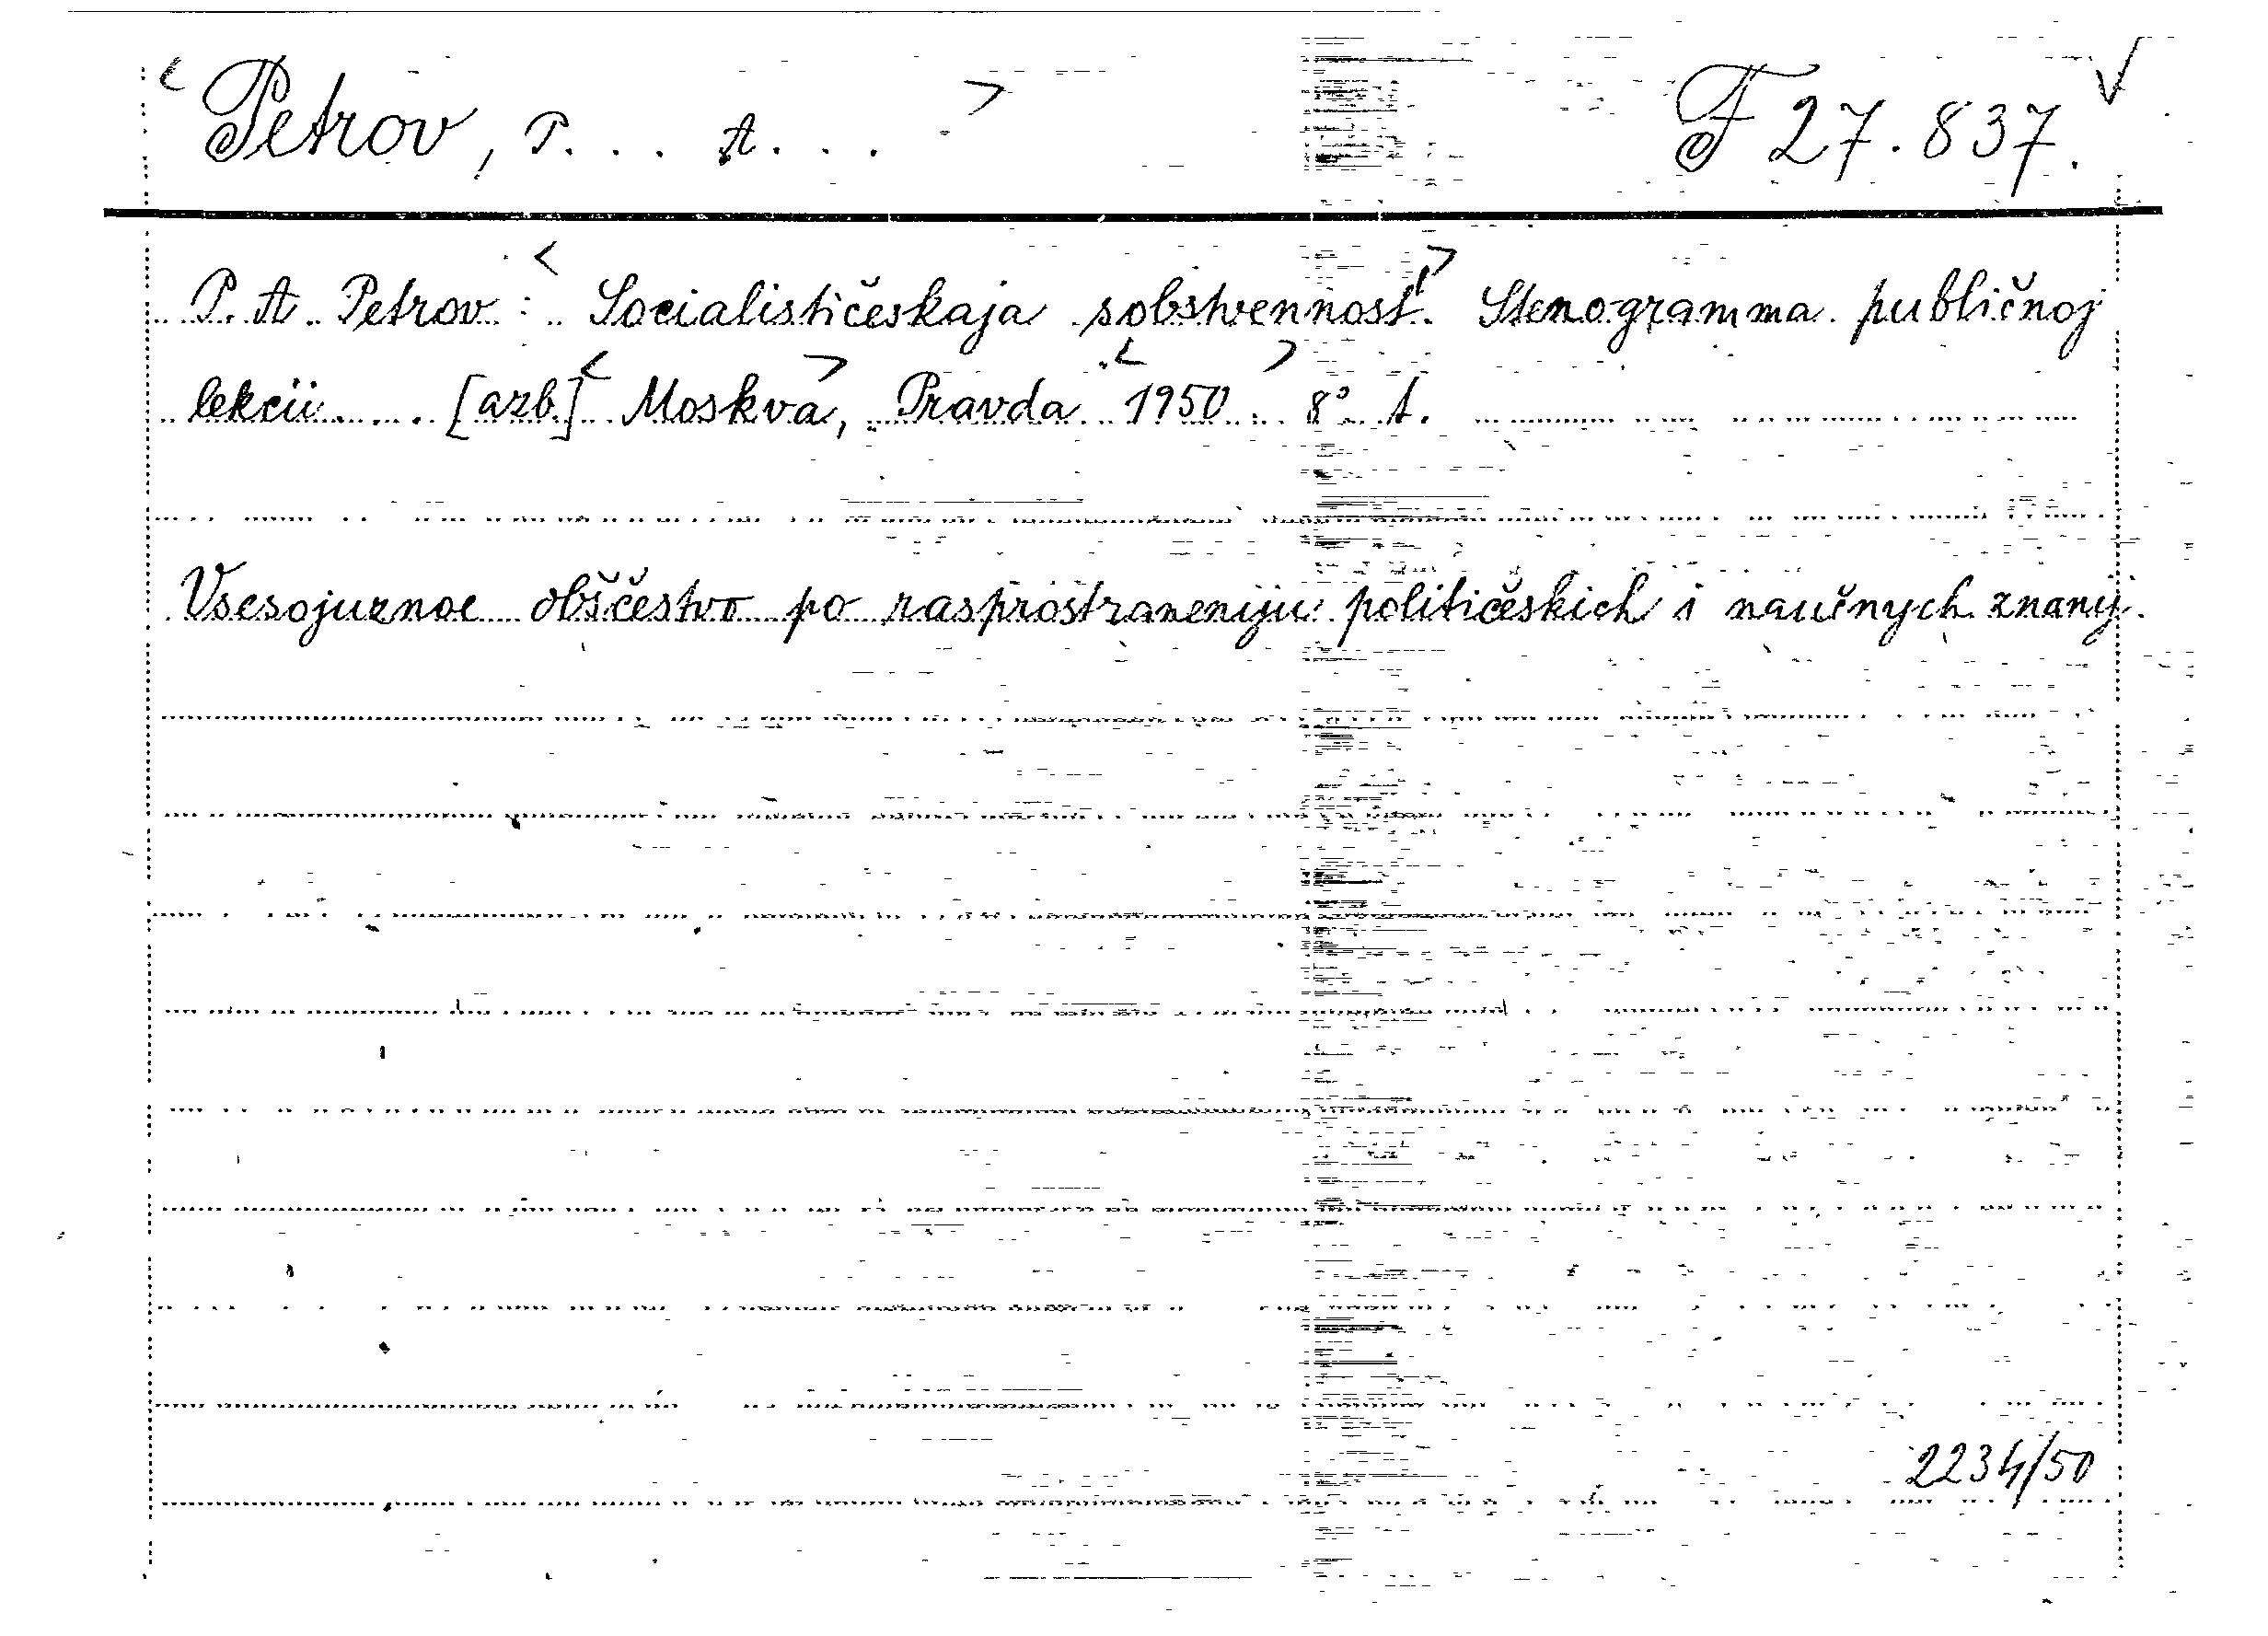 <Petrov, P... A...> F 27.837. √
P. A. Petrov: <Socialističeskaja sobstvennost'.> Stenogramma publičnoj
lekcii.... [azb.] <Moskva>, Pravda <1950>. 8° t.
Vsesojuznoe obščestvo po rasprostraneniju političeskich i naučnych znanij.
2234/50